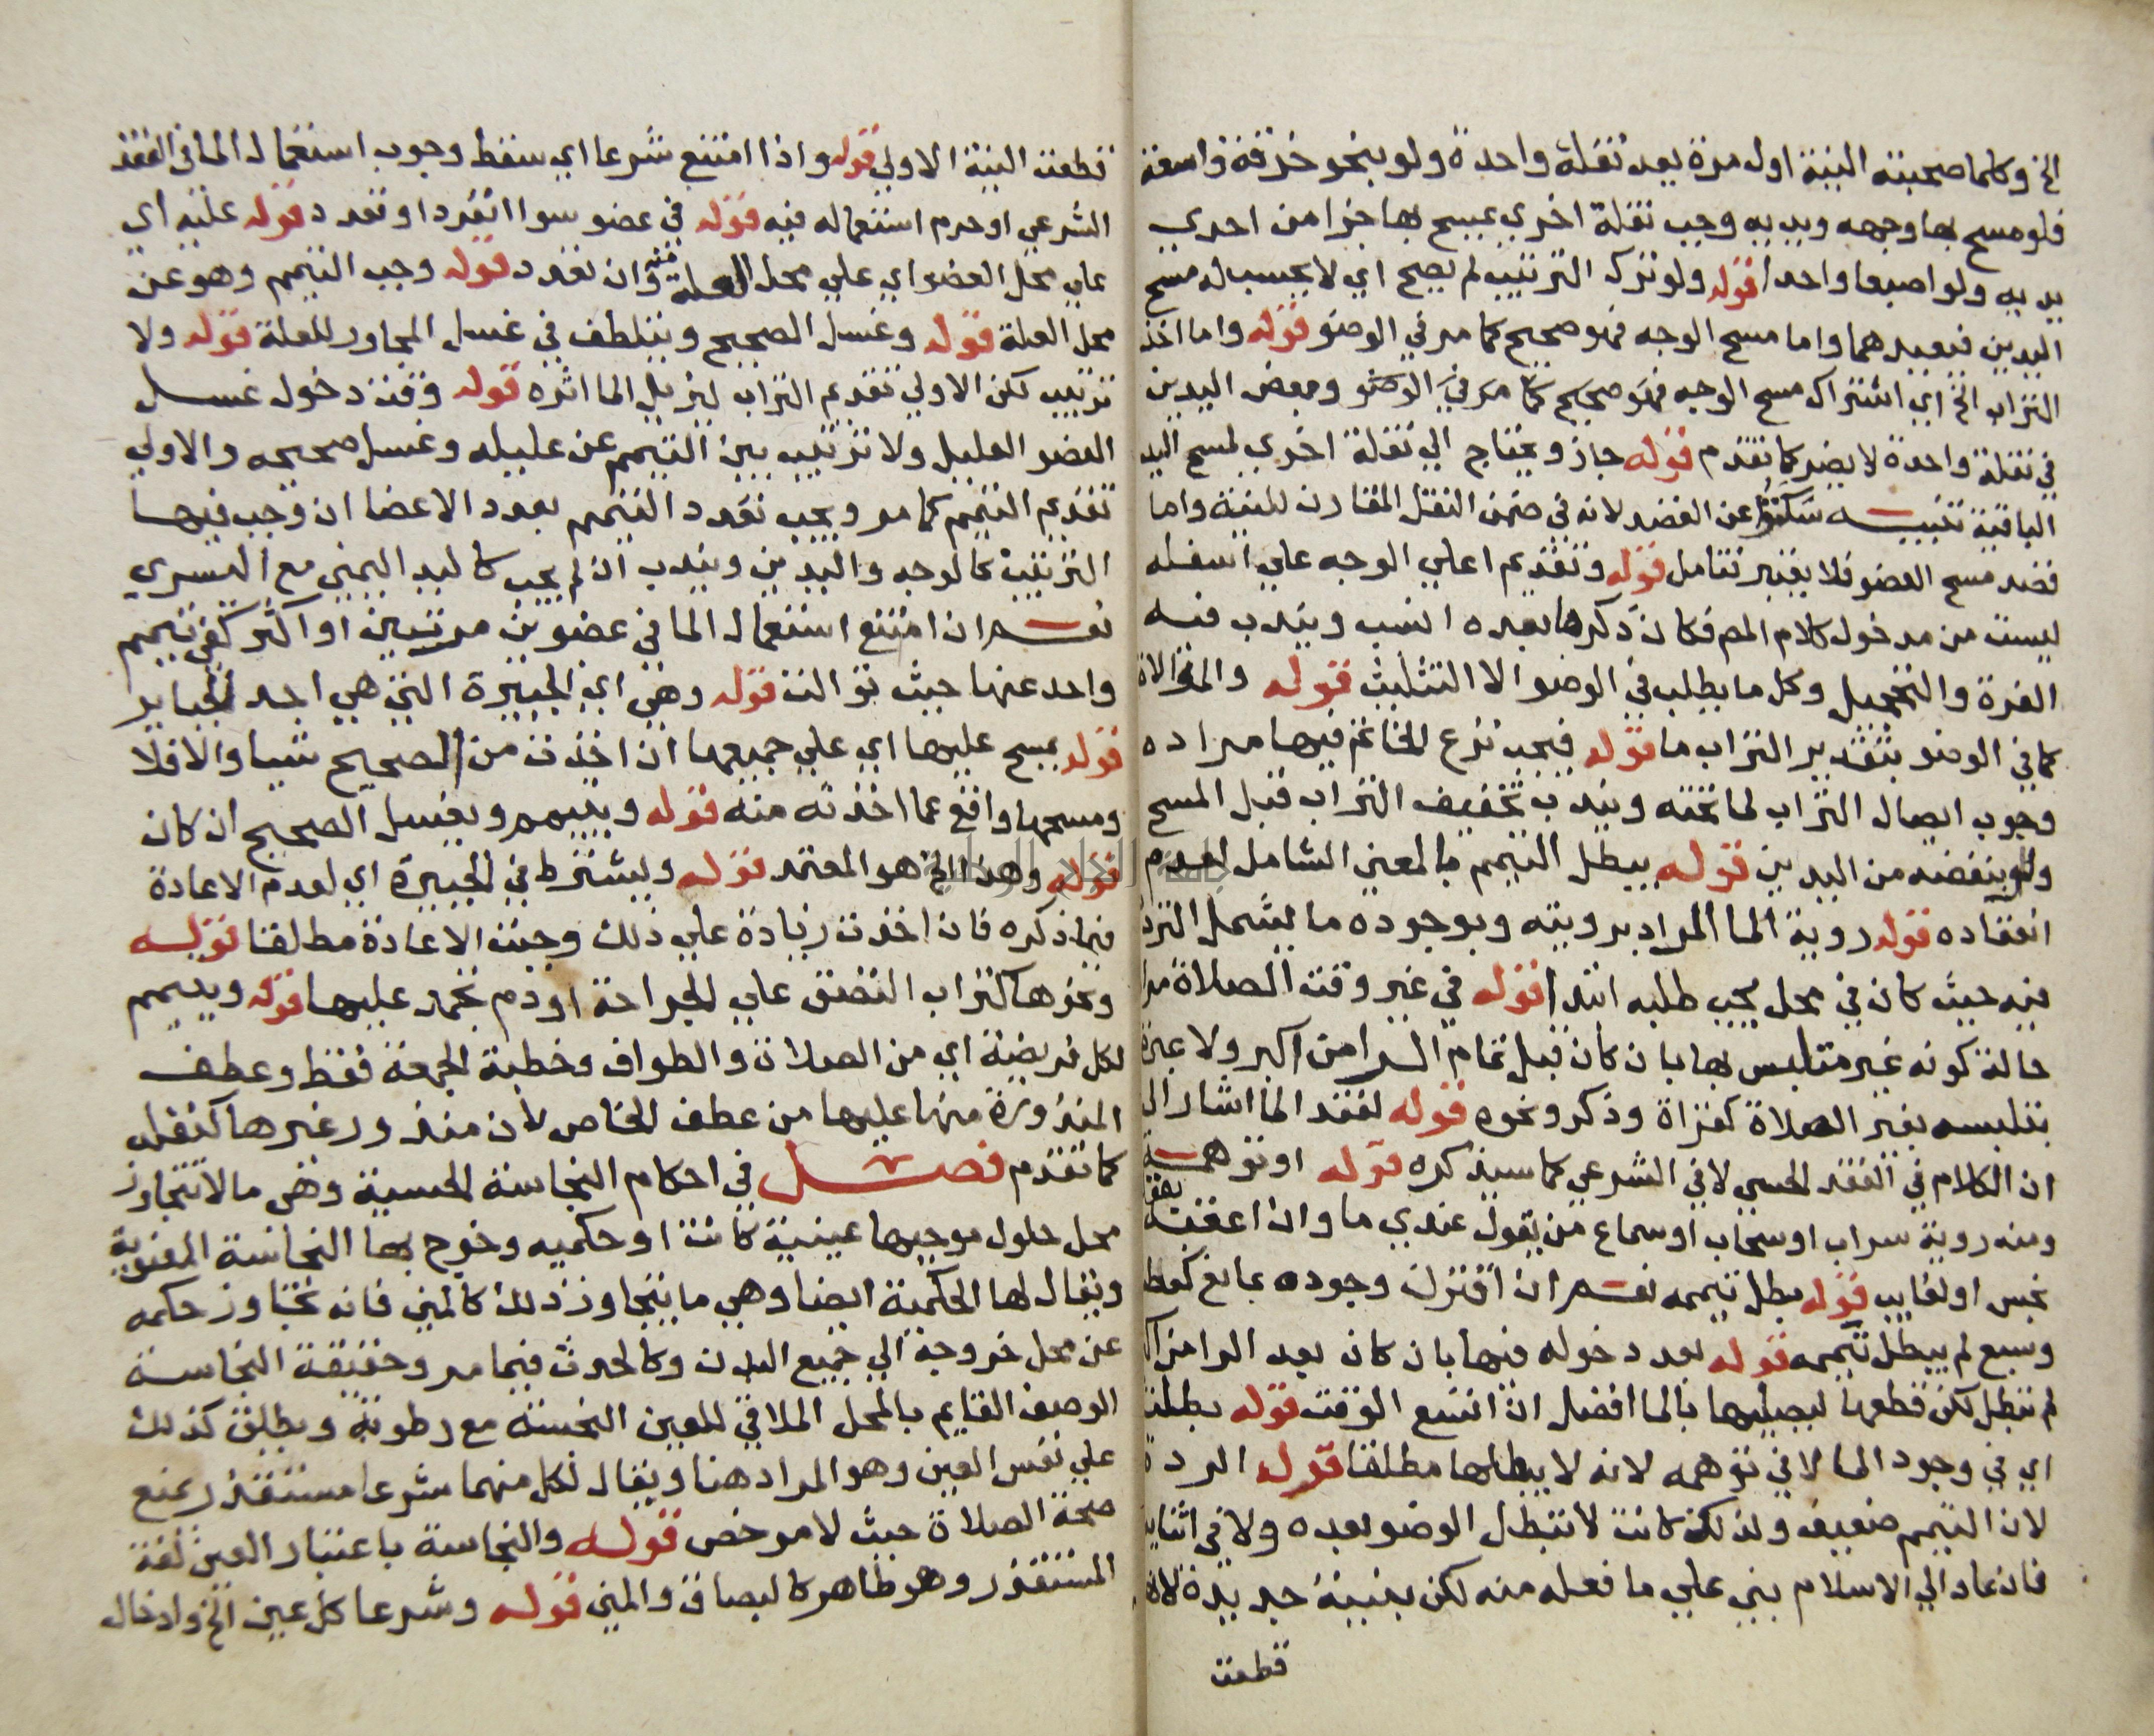 الخ وكلما صحبته النية اول مرة يعد نقلة واحدة ولو بنحو خرقة واسعة
فلو مسح بها وجهه ويديه وجب نقلة اخري يمسح بها جزا من احدي
يديه ولو اصبعا واحدا قوله ولو ترك الترتيب لم يصح اي لا يحسب له مسح
اليدين فيعيدهما واما مسح الوجه فهو صحيح كما مر في الوضو قوله واما اخذ
التراب الخ اي اشتراك مسح الوجه فهو صحيح كما مر في الوضو وبعض اليدين
في نقلة واحدة لا يضر كما تقدم قوله جاز ويحتاج الي نقلة اخري لمسح اليد
الباقية تنبيه سكتوا عن القصد لانه في ضمن النقل المقارن للنية واما
قصد مسح العضو فلا يعتبر فتامل قوله وتقديم اعلي الوجه علي اسفله
ليست من مدخول كلام المص فكان ذكرها بعده انسب ويندب فيه
الغرة والتحجيل وكل ما يطلب في الوضو الا التثليث قوله والموالاة
كما في الوضو بتقدير التراب ما قوله فيجب نزع الخاتم فيها مراده
وجوب ايصال التراب لما تحته ويندب تخفيف التراب قبل المسح
ولو بنفضه من اليدين قوله يبطل التيمم بالمعني الشامل لعدم
انعقاده قوله روية الما المراد برويته وبوجوده ما يشمل التردد
فيه حيث كان في محل يجب طلبه ابتدا قوله في غير وقت الصلاة مرا
حالة كونه غير متلبس بها بان كان قبل تمام الرا من اكبر ولا عبرة
بتلبسه بغير الصلاة كقراة وذكر ونحوه قوله لفقد الما اشار الي
ان الكلام في الفقد الحسي لا في الشرعي كما سيذكره قوله او توهمه
ومنه روية سراب او سحاب او سماع من يقول عندي ما وان اعقبه بقوله
نجس او لغايب قوله بطل تيممه نعم ان اقترن وجوده بمانع كعطش
وسبع لم يبطل تيممه قوله بعد دخوله فيها بان كان بعد الرا من اك
لم تبطل لكن قطعها ليصليها بالما افضل ان اتسع الوقت قوله بطلت
اي في وجود الما لا في توهمه لانه لا يبطلها مطلقا قوله الردة
لان التيمم ضعيف ولذلك كانت لا تبطل الوضو بعده ولا في اثنايه
فان عاد الي الاسلام بني علي ما فعله منه لكن بنية جديدة لانها
قطعت
قطعت النية الاولي قوله واذا امتنع شرعا اي سقط وجوب استعمال الما في الفقد
الشرعي او حرم استعماله فيه قوله في عضو سوا انفرد او تعدد قوله عليه اي
علي محل العضو اي علي محل العلة منه وان تعدد قوله وجب التيمم وهو عن
محل العلة قوله وغسل الصحيح ويتلطف في غسل المجاور للعلة قوله ولا
ترتيب لكن الاولي تقديم التراب ليزيل الما اثره قوله وقت دخول غسل
العضو العليل ولا ترتيب بين التيمم عن عليله وغسل صحيحه والاولي
تقديم التيمم كما مر ويجب تعدد التيمم بعدد الاعضا ان وجب فيها
الترتيب كالوجه واليدين ويندب ان لم يجب كاليد اليمني مع اليسري
نعم ان امتنع استعمال الما في عضوين مرتبين او اكثر كفي تيمم
واحد عنها حيث توالت قوله وهي اي الجبيرة التي هي احد الجباير
قوله يمسح عليها اي علي جميعها ان اخذت من الصحيح شيا والا فلا
ومسحها واقع عما اخذته منه قوله ويتيمم ويغسل الصحيح ان كان
قوله وهذا الخ هو المعتمد قوله ويشترط في الجبيرة اي لعدم الاعادة
فيما ذكره فان اخذت زيادة علي ذلك وجبت الاعادة مطلقا قوله
ونحوها كتراب التصق علي الجراحة او دم تجمد عليها قوله ويتيمم
لكل فريضة اي من الصلاة والطواف وخطبة الجمعة فقط وعطف
المنذورة منها عليها من عطف الخاص لان منذور غيرها كنفله
كما تقدم فصل في احكام النجاسة الحسية وهي ما لا تتجاوز
محل حلول موجبها عينية كانت او حكميه وخرج بها النجاسة المعنوية
ويقال لها الحكمية ايضا وهي ما يتجاوز ذلك كالمني فانه تجاوز حكمه
عن محل خروجه الي جميع البدن وكالحدث فيما مر وحقيقة النجاسة
الوصف القايم بالمحل الملاقي للعين النجسة مع رطوبة ويطلق كذلك
علي نفس العين وهو المراد هنا ويقال لكل منهما شرعا مستقذر يمنع
صحة الصلاة حيث لا مرخص قوله والنجاسة باعتبار العين لغة
المستقذر وهو ظاهر كالبصاق والمني قوله وشرعا كل عين الخ وادخال